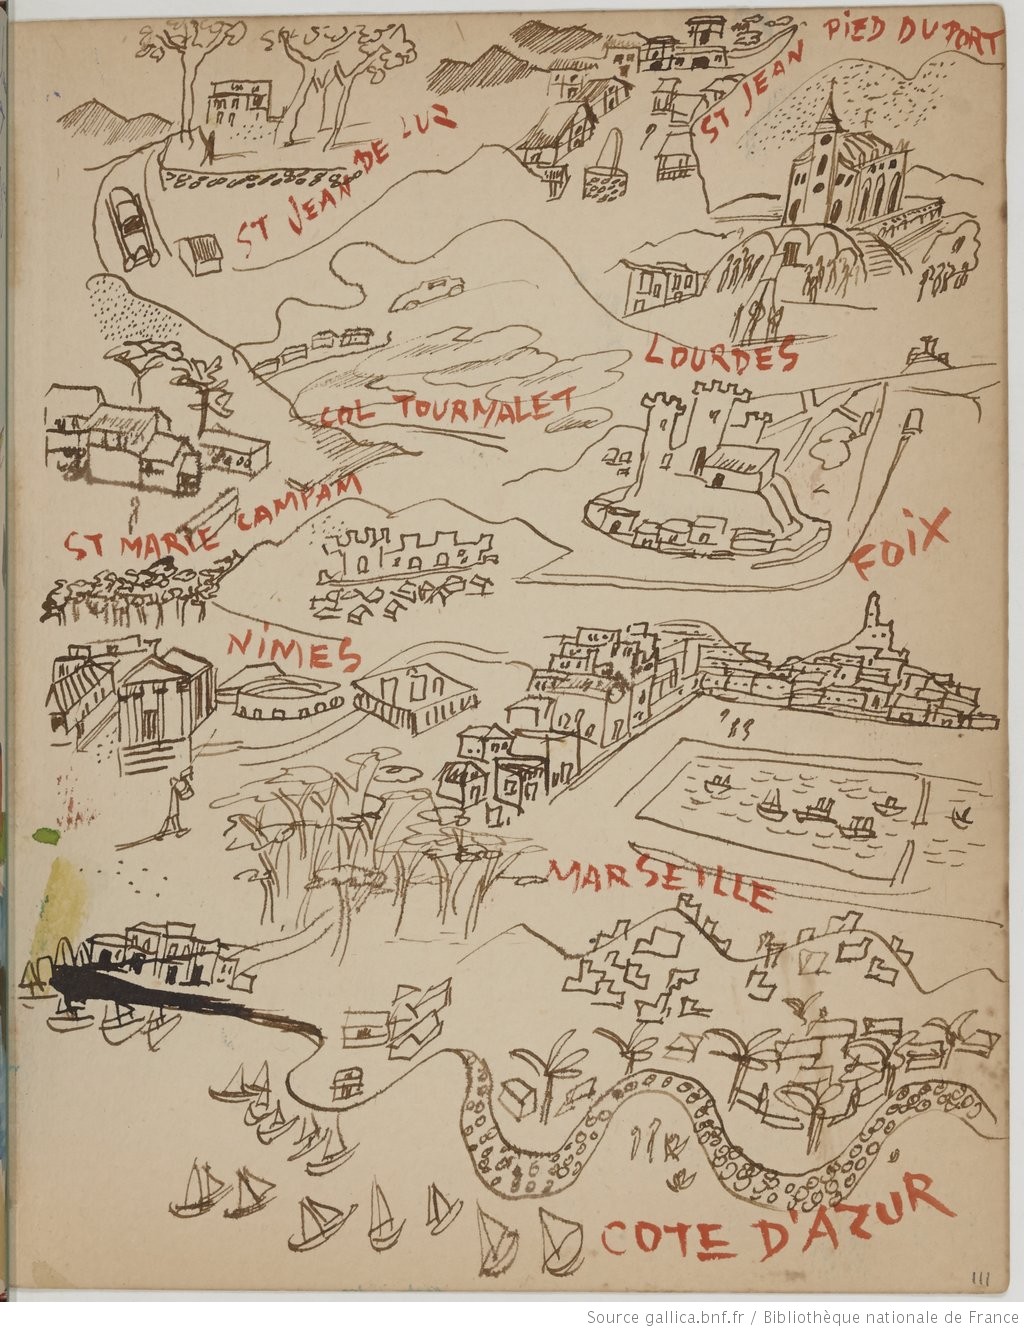 PIED DU PORT
ST JEAN
ST JEAN DE LUZ
LOURDES
COL TOURMALET
ST MARIE CAMPAM
FOIX
NÎMES
MARSEILLE
COTE D'AZUR
111
Source gallica.bnf.fr / Bibliothèque nationale de France